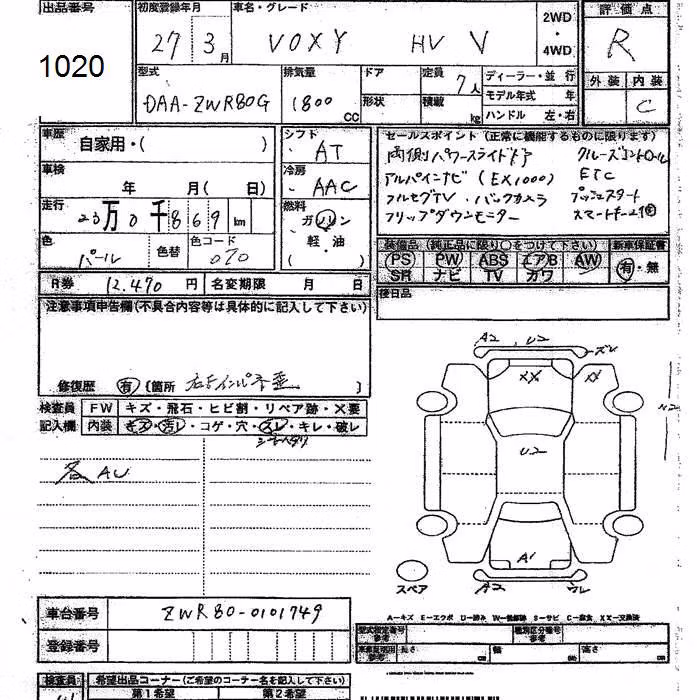 出品番号 初度登録年月 車名・グレード 2WD ・ 4WD 評価点
1020 27 3月 VOXY HV V R
型式 排気量 ドア 定員 7人 ディーラー・並 行 外装 内装
DAA-ZWR80G 1800 CC 形状 積載 kg モデル年式 年 C
ハンドル 左・右
車歴 自家用・( ) シフト AT セールスポイント (正常に機能するものに限ります)
両側パワースライドドア クルーズコントロール
車検 年 月( 日) 冷房 AAC アルパインナビ (EX1000) ETC
フルセグTV・バックカメラ プッシュスタート
走行 23万0千869 km 燃料 ガソリン 軽・油 フリップダウンモニター
色 パール 色替 色コード 070
装備品 (純正品に限り○をつけて下さい) 新車保証書
PS PW ABS エアB AW 有・無
SR ナビ TV カワ
R券 12,470 円 名変期限 月 日 後日品
注意事項申告欄(不具合内容等は具体的に記入して下さい)
修復歴 有 (箇所 )
検査員 FW キズ・飛石・ヒビ割・リペア跡・X要
記入欄 内装 キズ・汚レ・コゲ・穴・スレ・キレ・破レ
各AU
A2 U2 ズレ
XX
U2
A1
スペア A2 ワレ
車台番号 ZWR80-0101749
登録番号
A-キズ E-エクボ U-凹み W-補修跡 S-サビ C-腐食 XX-交換済
型式指定番号 参考 類別区分番号 参考
長さ cm 幅 cm 高さ cm
検査員 希望出品コーナー(ご希望のコーナー名を記入して下さい)
第1希望 第2希望